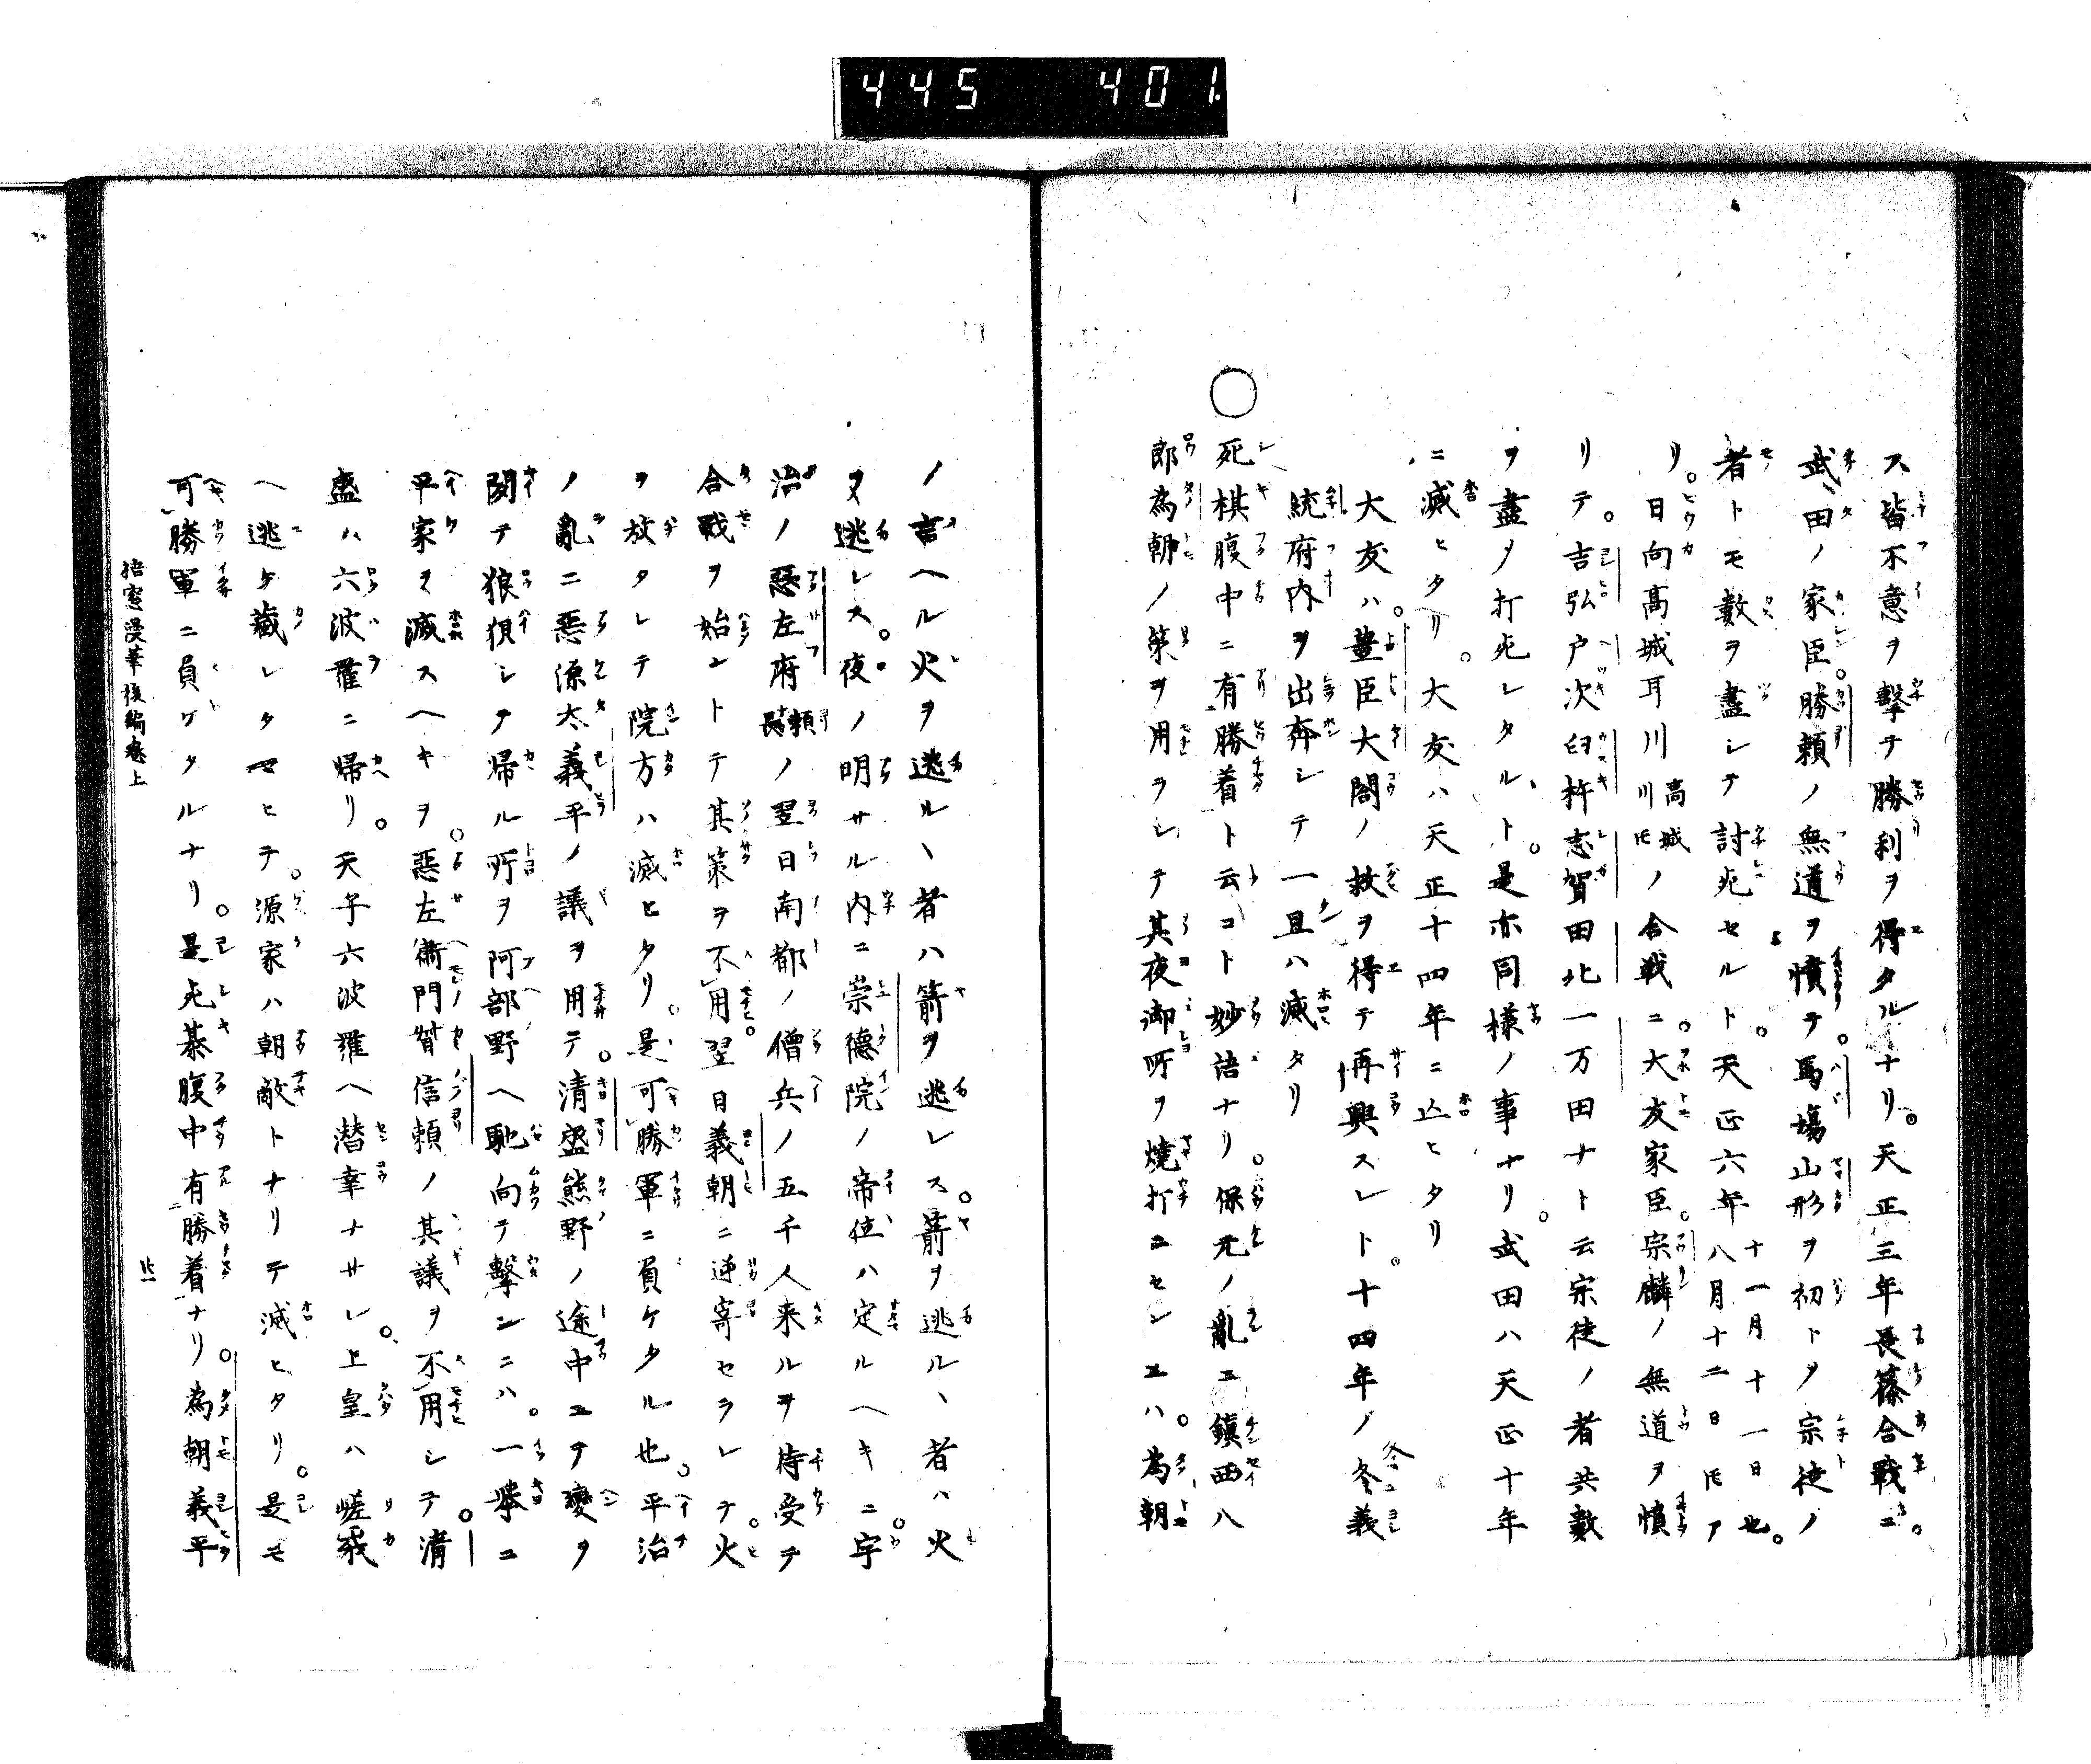 445 401
ス皆不意ヲ撃テ勝利ヲ得タルナリ。天正三年長篠合戦ニ。
武田ノ家臣。勝頼ノ無道ヲ憤テ。馬場山形ヲ初トシテ宗徒ノ
者トモ數ヲ盡シテ討死セルト。天正六年十一月十一日也。八月十二日トモア
リ。日向高城耳川高城川トモノ合戦ニ。大友家臣。宗麟ノ無道ヲ憤
リテ。吉弘戸次臼杵志賀田北一万田ナト云宗徒ノ者共數
ヲ盡ノ打死レタルト。是亦同様ノ事ナリ。武田ハ天正十年
ニ滅ヒタリ。大友ハ天正十四年ニ亡ヒタリ
大友ハ。豊臣大閤ノ救ヲ得テ再興スレト。十四年ノ冬義
統府内ヲ出奔シテ一旦ハ滅タリ
○死棋腹中ニ有勝着ト云コト妙語ナリ。保元ノ亂ニ鎮西八
郎為朝ノ策ヲ用ラレテ其夜御所ヲ焼打ニセンエハ。為朝
ノ言ヘル火ヲ逃ル、者ハ箭ヲ逃レス。箭ヲ逃ル、者ハ火
ヲ逃レス。夜ノ明サル内ニ崇德院ノ帝位ハ定ルヘキニ。宇
治ノ惡左府頼長ノ翌日南都ノ僧兵ノ五千人来ルヲ待受テ
合戰ヲ始ントテ其策ヲ不用。翌日義朝ニ逆寄セラレテ。火
ヲ放タレテ院方ハ滅ヒタリ。是可勝軍ニ負ケタル也。平治
ノ亂ニ惡源太義平ノ議ヲ用テ。清盛熊野ノ途中ニテ變ヲ
聞テ狼狽シテ帰ル所ヲ阿部野ヘ馳向テ撃ンニハ。一挙ニ
平家ヲ滅スヘキヲ。惡左衞門督信頼ノ其議ヲ不用シテ。清
盛ハ六波羅ニ帰リ。天子六波羅ヘ潜幸ナサレ。上皇ハ嵯峨
ヘ逃ケ藏レタマヒテ。源家ハ朝敵トナリテ滅ヒタリ。是モ
可勝軍ニ負ケタルナリ。是死棊腹中有勝着ナリ。為朝義平
梧窓漫筆後編巻上